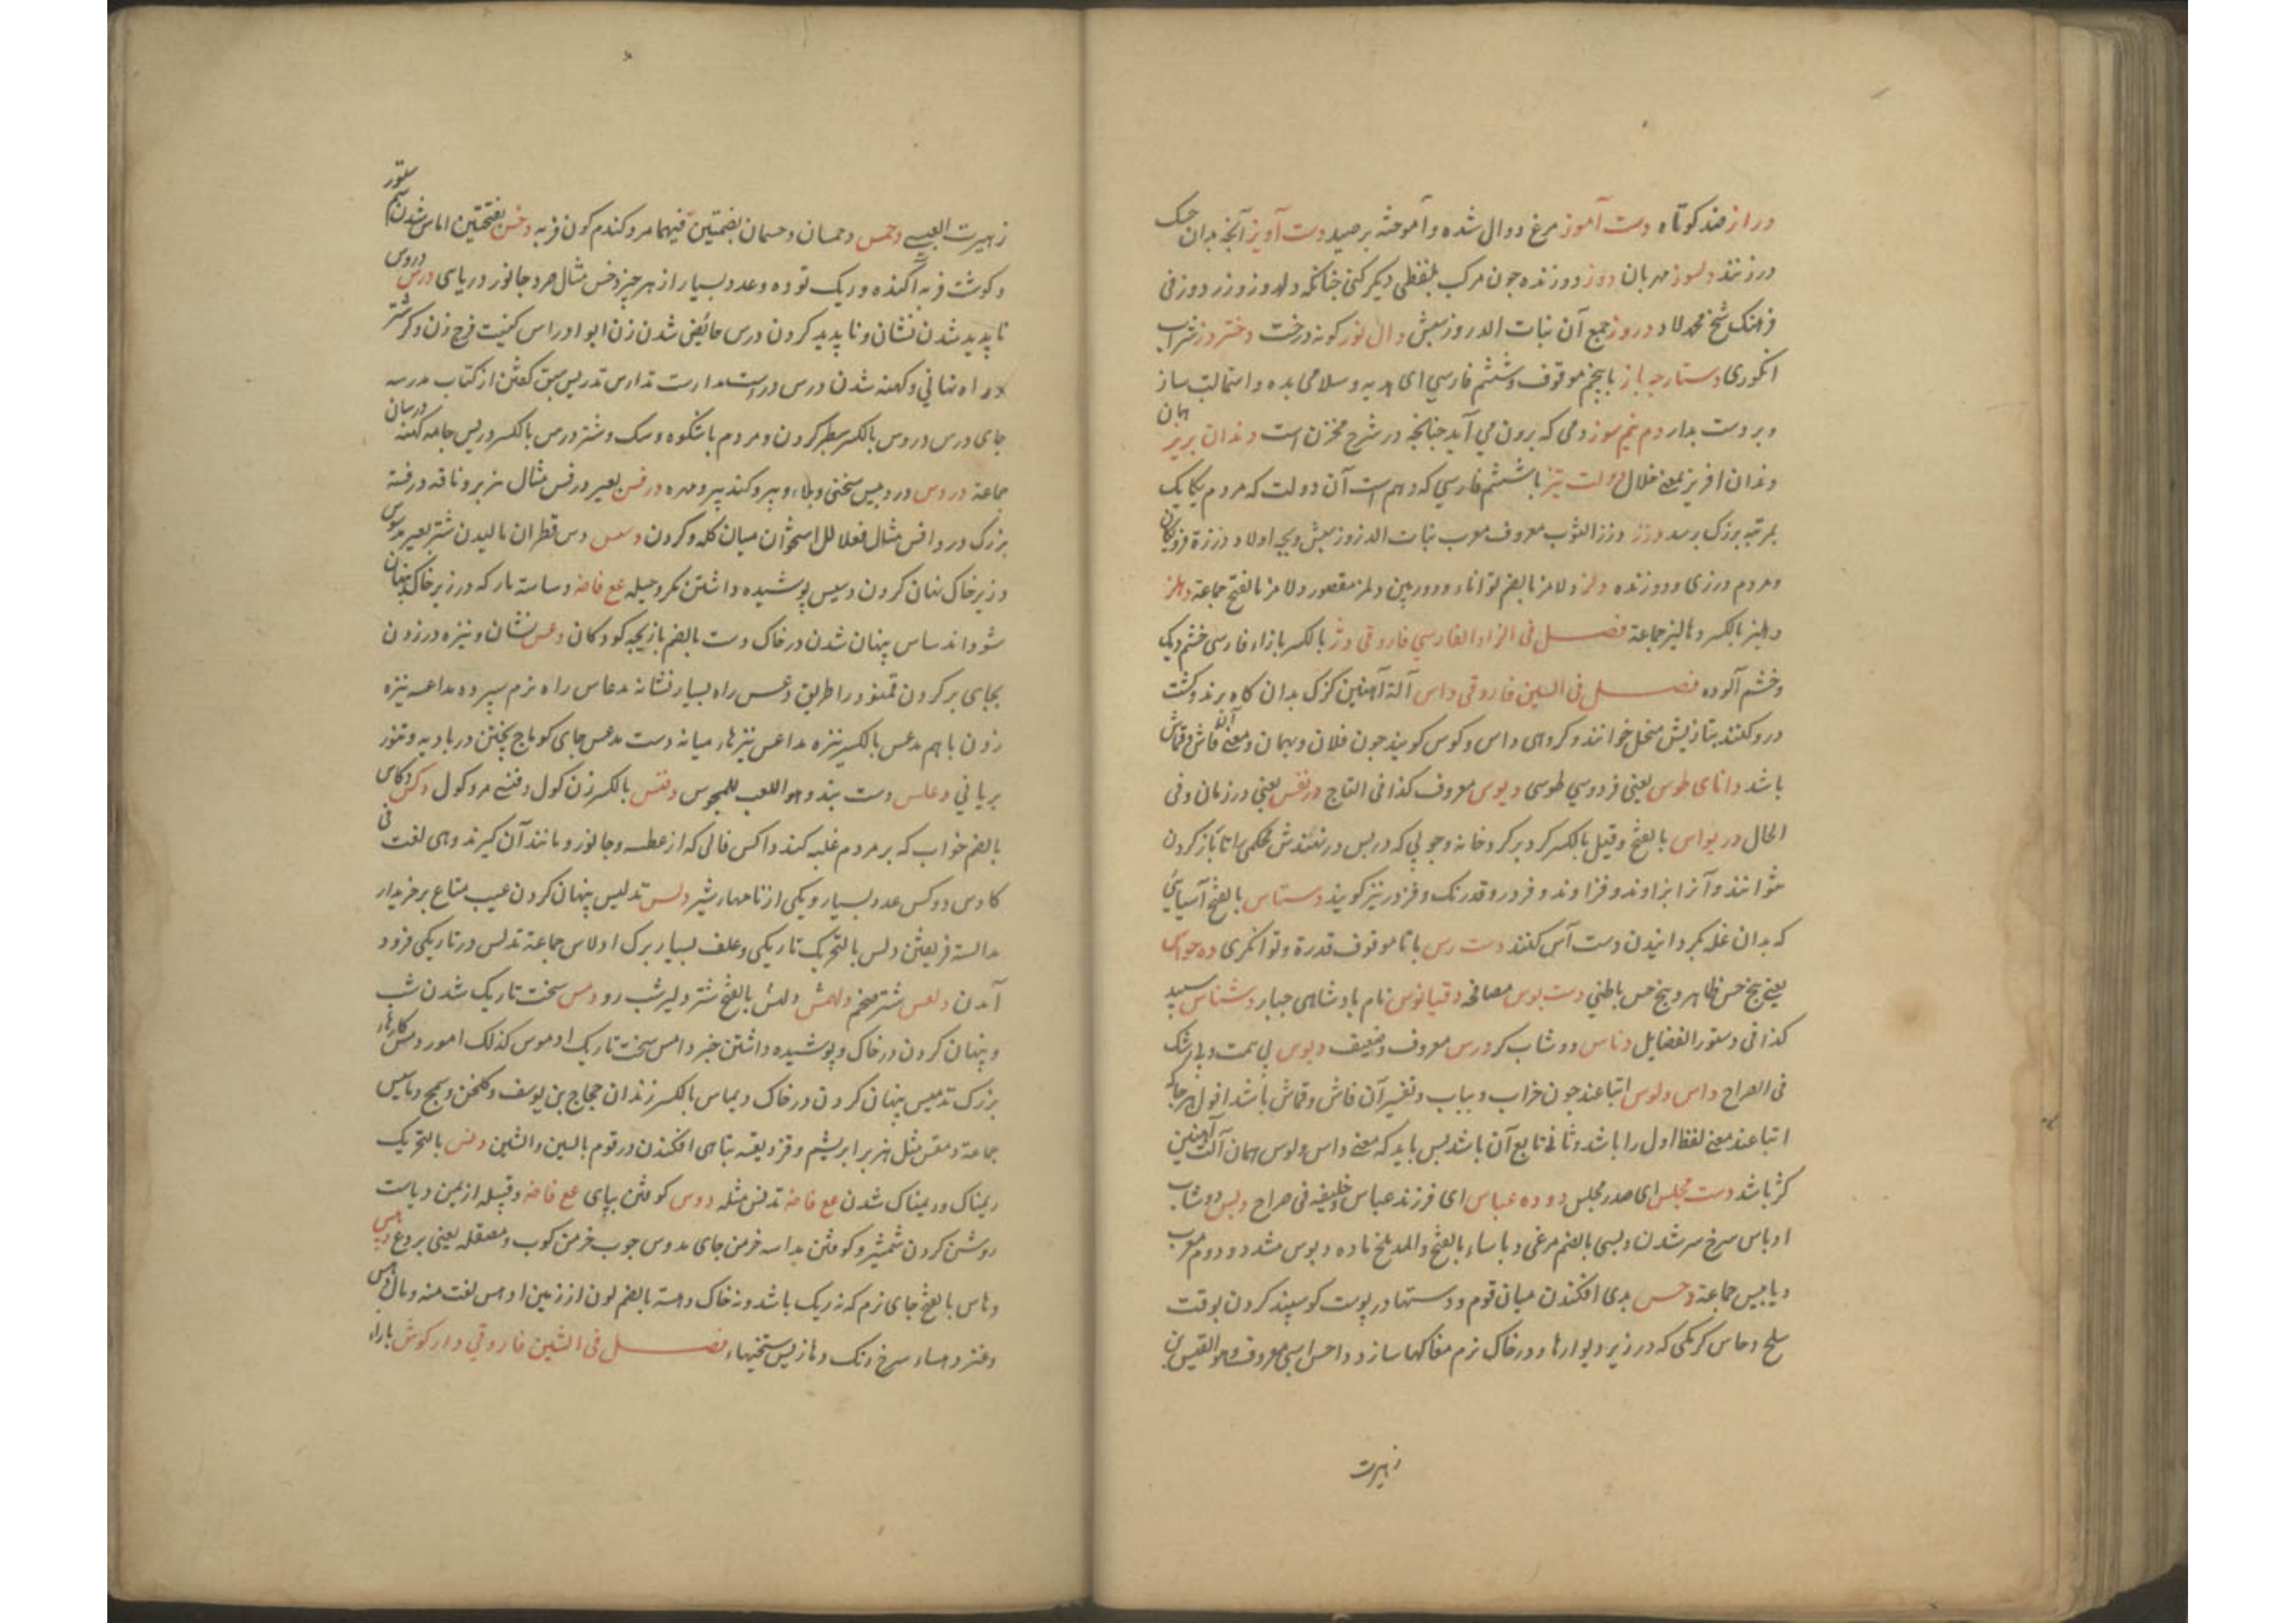 دراز ضد کوتاه دست آموز مرغ دوال شده و آموخته بر صید دست آویز آنچه بدان چنک
در زنند دلسوز مهربان دوز دوزنده چون مرکب بلفظی دیکر کنی چنانکه دلدوز و زردوز فی
فرهنک شیخ محمد لاد دروز جمع آن بنات الدروز سپش دال نوز کونه درخت دختر رز شراب
انکوری دستارچه باز با پنجم موقوف و ششم فارسی ای هدیه و سلامی بده و استمالت ساز
و بر دست بدار دم نیم سوز دمی که برون می آید چنانچه در شرح مخزن است دندان بریز همان
دندان افریز بمعنی خلال دولت تیز با ششم فارسی که دهم است آن دولت که مردم یکایک
بمرتبه بزرک برسد درز درز الثوب معروف معرب بنات الدروز سپش و بچه اولاد درزة فرومایکان
و مردم درزی و دوزنده دلز دلامز بالضم توانا و دوربین دلمز مقصور دلامز بالفتح جماعة دهلز
دهلیز بالکسر دهالیز جماعة فصل فی الزاء الفارسی فاروقی دژ بالکسر بازاء فارسی خشم و یک
و خشم آلوده فصل فی السین فاروقی داس آلة آهنین کژک بدان کاه برند و کشت
درو کنند بتازیش منجل خوانند و کروهی داس و کوس کویند چون فلان و بهمان و معنی آن قاش و قماش
باشد دانای طوس یعنی فردوسی طوسی دبوس معروف کذا فی التاج در نفس یعنی در زمان و فی
الحال دریواس بالفتح و قیل بالکسر کرد بر کرد خانه و چوبی که در پس در نهندش محکمی را تا باز کردن
نتوانند و آنرا بزاوند و فزاوند و فردر و قدرنک و فژدر نیز کویند دستاس بالفتح آسیائی
که بدان غله کردانیدن دست آس کنند دست رس با تا موقوف قدرة و توانکری ده حواس
یعنی پنج حس ظاهر و پنج حس باطنی دست بوس مصافحه دقیانوس نام بادشاهی جبار دشناس سپید
کذا فی دستور الفضایل دناس دوشاب کر درس معروف و ضعیف دیوس بی همت و بی رشک
فی الصراح داس ولوس اتباعند چون خراب و یباب و تفسیر آن قاش و قماش باشد اقول هر جا که
اتباعند معنی لفظ اول را باشد و ثانی تابع آن باشد پس باید که معنی داس ولوس همان آلت آهنین
کژ باشد دست مجلس ای صدر مجلس دوده عباس ای فرزند عباس خلیفه فی صراح دبس دوشاب
ادباس سرخ سر شدن و دبسی بالضم مرغی دباساء بالفتح و المد ملخ ماده دبوس مشدد دوم معرب
دبابیس جماعة دحس بدی افکندن میان قوم و دستها در پوست کوسپند کردن بوقت
سلخ دحاس کرمکی که در زیر دیوارها و در خاک نرم مغاکها سازد داحس اسبی معروف و هو القیس بن
زهیرت
زهیرت العبسی دخمس و دحمسان و دحسمان بضمتین فیهما مرد کندم کون فربه دخس بفتحتین اماس شدن سم ستور
و کوشت فربه آکنده و ریک توده و عدد بسیار از هر چیز دخس مثال صرد جانور دریای درس دروس
ناپدید شدن نشان و ناپدید کردن درس حائض شدن زن ابو ادراس کنیت فرج زن و کر شتر
در راه نهانی و کهنه شدن درس دراست مدارست تدارس تدریس سبق کفتن از کتاب مدرسه
جای درس درواس بالکسر سطبر کردن و مردم باشکوه و سک و شتر درس بالکسر دریس جامه کهنه درسان
جماعة دردبیس سختی و بلا و پیر و کنده پیر و مهره درفس بعیر درفس مثال هزبر و ناقه درفسة
بزرک درداقس مثال فعلالل استخوان میان کله و کردن دسس دس قطران مالیدن شتر بعیر مدسوس
و زیر خاک نهان کردن دسیس پوشیده داشتن مکر و حیله مع فاضه دساسة مار که در زیر خاک پنهان
شود اندساس پنهان شدن در خاک دست بالضم بازیچه کودکان دعس نشان و نیزه در زدن
بجای بر کردن دعس راه بسیار نشانه مدعاس راه نرم سپرده مداعسه نیزه
زدن باهم مدعس بالکسر نیزه مداعس نیزها میانه دست مدعس جای کوماج پختن در بادیه و تنور
بریانی دعلس دست بند و هو اللعب للمجوس دفنس بالکسر زن کول دفنسی مرد کول دکس دکاس
بالضم خواب که بر مردم غلبه کند داکس فالی که از عطسه و جانور و مانند آن کیرند و هی لغت فی
کادس دوکس عدد بسیار و یکی از نامهای شیر دلس تدلیس پنهان کردن عیب متاع بر خریدار
مدالسة فریفتن دلس بالتحریک تاریکی و علف بسیار برک ادلاس جماعة تدلس در تاریکی فرود
آمدن دلعس شتر ضخم دلهمس بالفتح شتر دلیر شب رو دمس سخت تاریک شدن شب
و پنهان کردن در خاک و پوشیده داشتن خبر دامس سخت تاریک ادموس کذلک امور دمس کارهای
بزرک تدمیس پنهان کردن در خاک دیماس بالکسر زندان حجاج بن یوسف و کلخن و دمامیس
جماعة دمقس مثل هزبر ابریشم و قز دنقسه تباهی افکندن در قوم بالسین و الشین دنس بالتحریک
ریمناک و ریمناک شدن مع فاضه تدنس مثله دوس کوفتن بپای مع فاضه و قبیله از یمن دیاست
روشن کردن شمشیر و کوفتن مداسه خرمن جای مدوس چوب خرمن کوب و مصقله یعنی بزدغ دهس
دهاس بالفتح جای نرم که نه ریک باشد و نه خاک دهسة بالضم لون از زمین ادهس لغت منه و رمال دهس
و عنز دهساء سرخ رنک دهاریس سختیها فصل فی الشین فاروقی دارکوش باراء